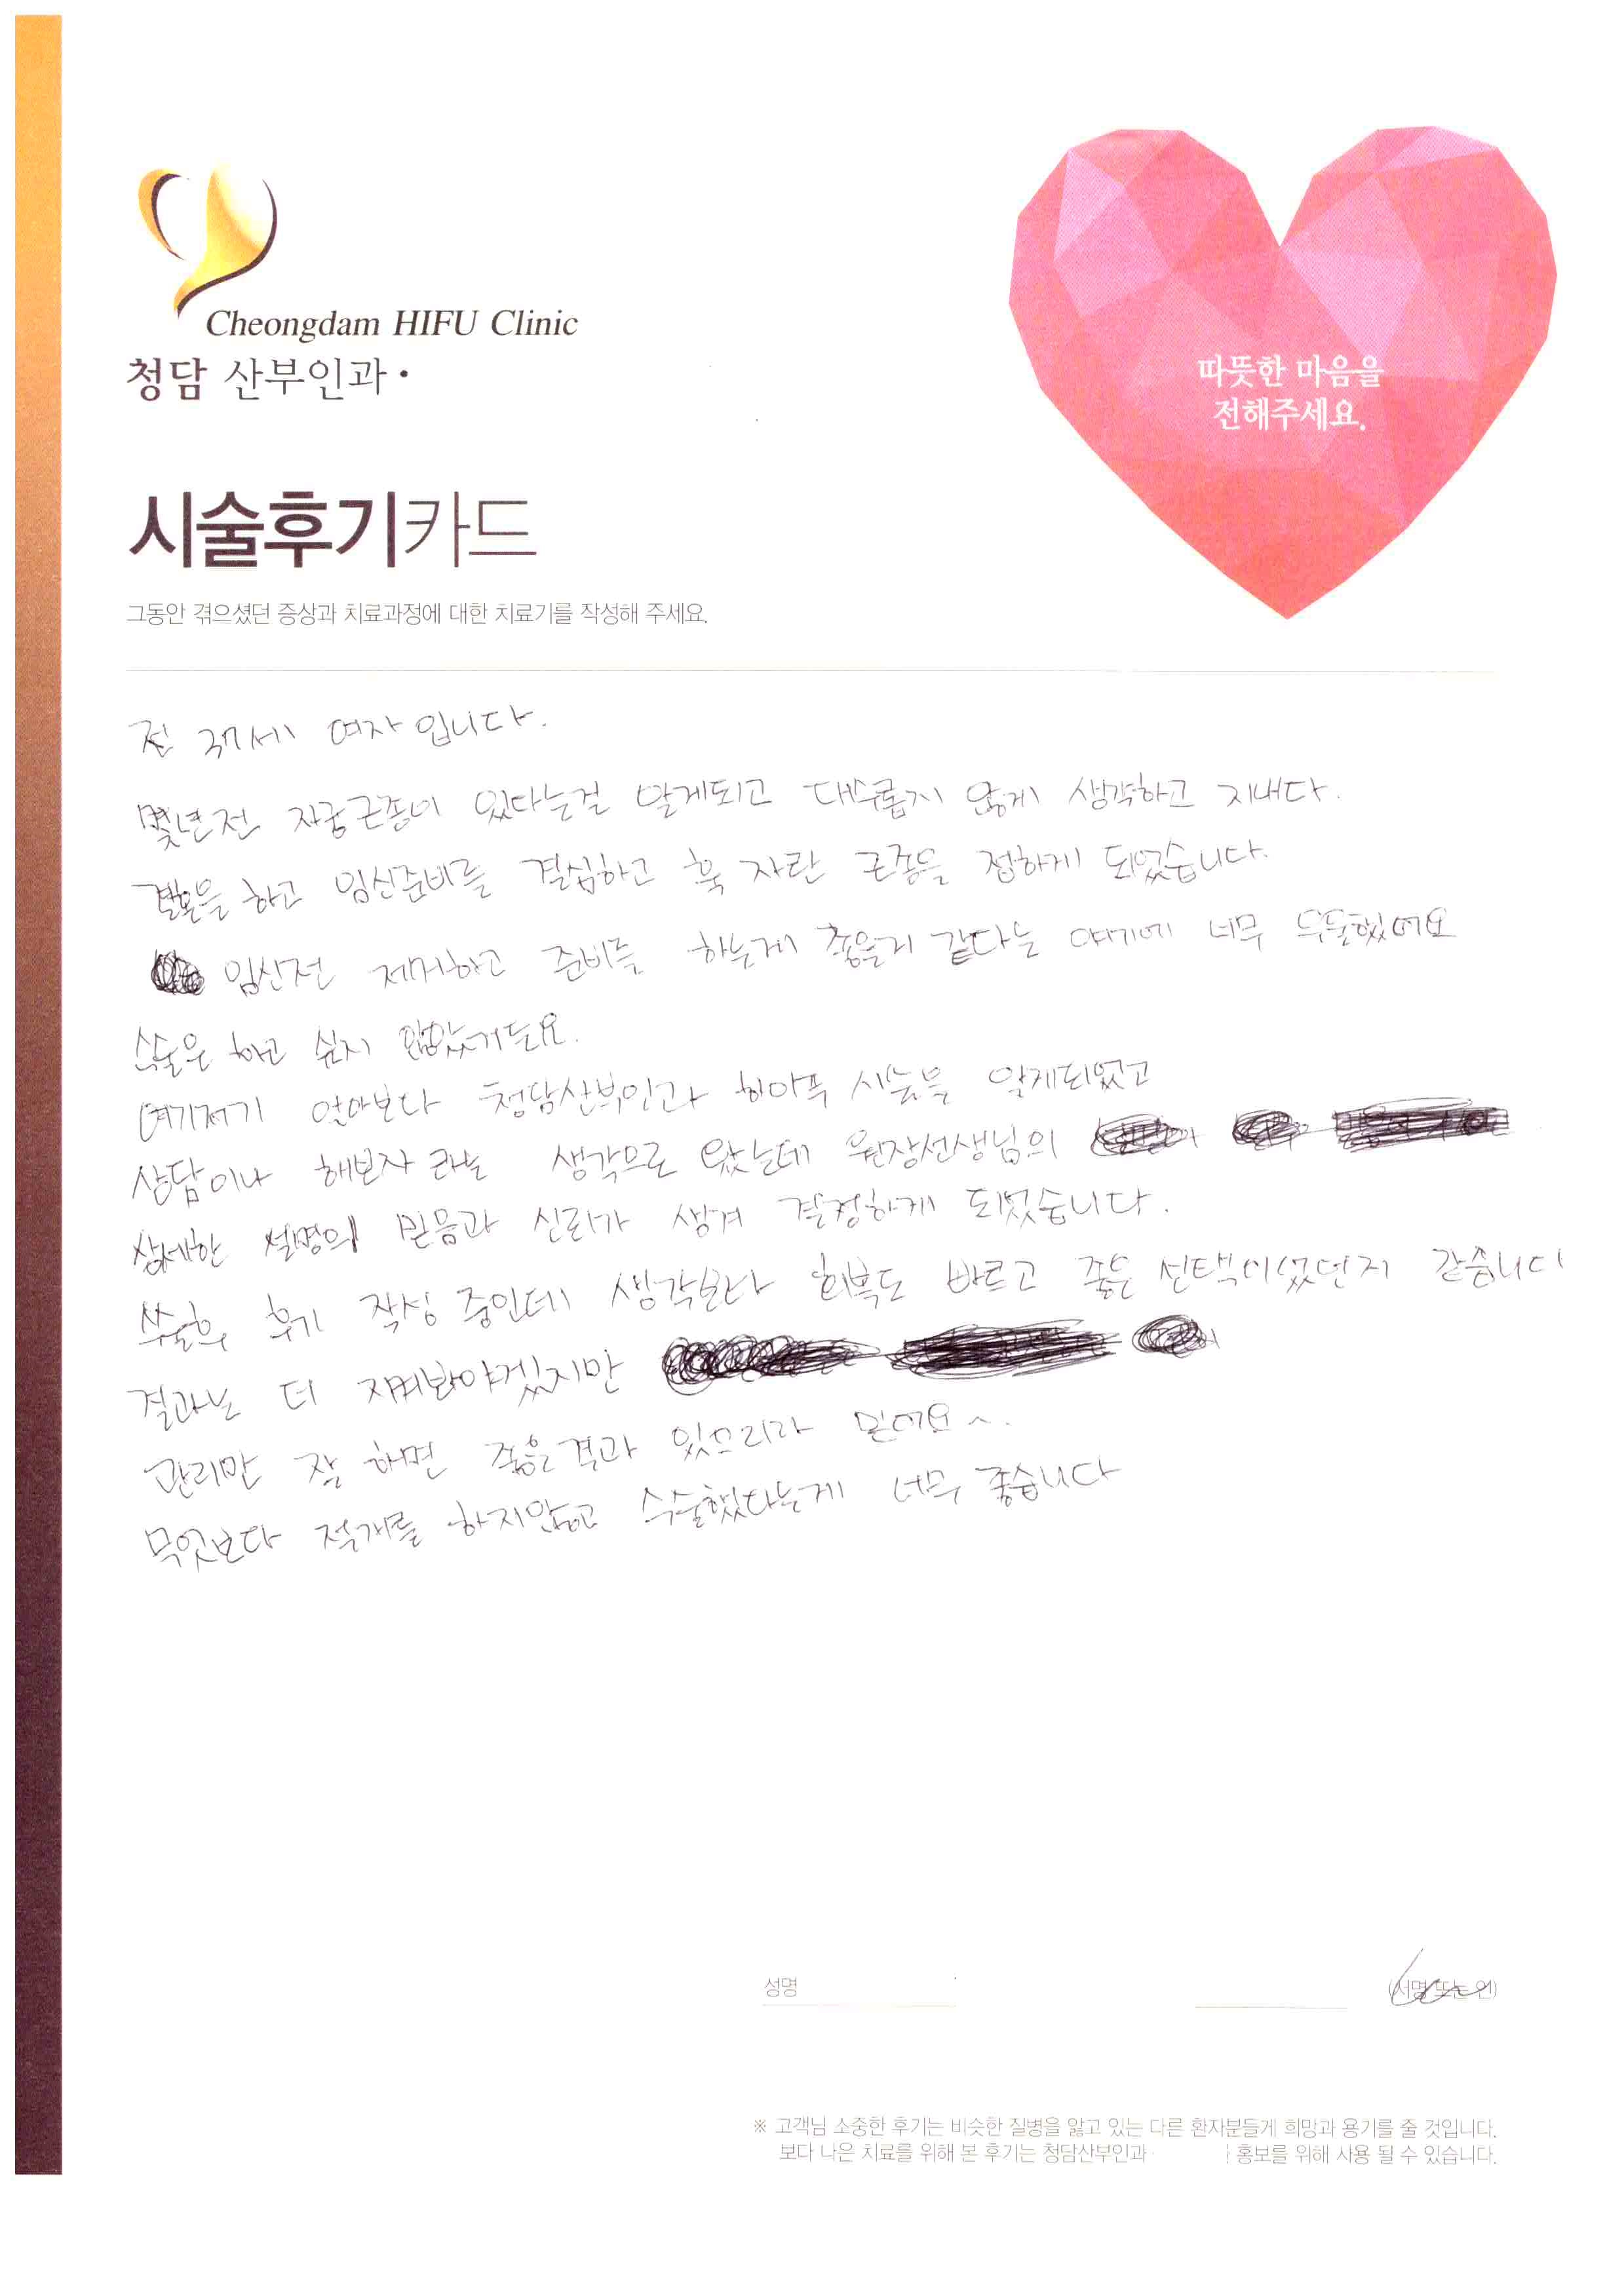 Cheongdam HIFU Clinic
청담 산부인과
따뜻한 마음을
전해주세요.
시술후기카드
그동안 겪으셨던 증상과 치료과정에 대한 치료기를 작성해 주세요.
전 37세 여자 입니다.
몇년전 자궁근종이 있다는걸 알게되고 대수롭지 않게 생각하고 지내다.
결혼을 하고 임신준비를 결심하고 훅 자란 근종을 접하게 되었습니다.
임신전 제거하고 준비를 하는게 좋을거 같다는 얘기에 너무 우울했어요
수술은 하고 싶지 않았거든요.
여기저기 알아보다 청담산부인과 하이푸 시술을 알게되었고
상담이나 해보자 라는 생각으로 왔는데 원장선생님의
상세한 설명의 믿음과 신뢰가 생겨 결정하게 되었습니다.
수술후 후기 작성 중인데 생각보다 회복도 빠르고 좋은 선택이였던거 같습니다
결과는 더 지켜봐야겠지만
관리만 잘 하면 좋은결과 있으리라 믿어요^.
무엇보다 절개를 하지않고 수술했다는게 너무 좋습니다
성명 (서명 또는 인)
※ 고객님 소중한 후기는 비슷한 질병을 앓고 있는 다른 환자분들게 희망과 용기를 줄 것입니다.
보다 나은 치료를 위해 본 후기는 청담산부인과 홍보를 위해 사용 될 수 있습니다.